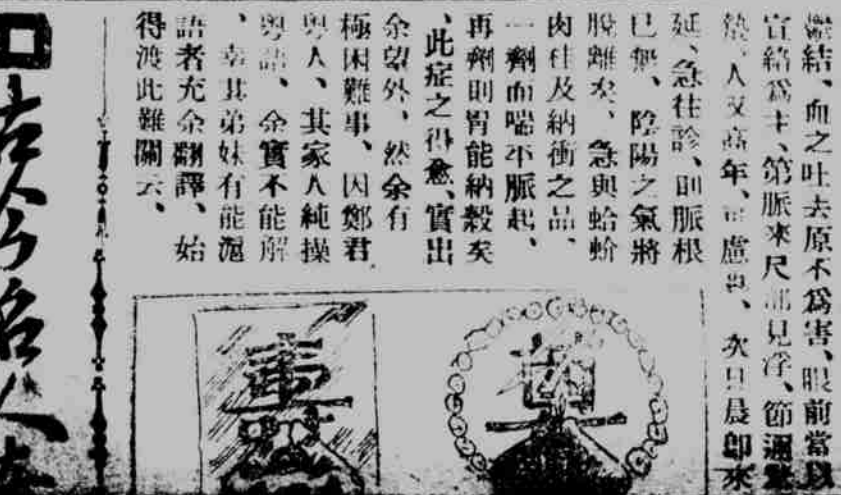 結、血之吐去原不爲害、眼前當以
宣絡爲主、第脈來尺部見浮、節邇
人又高年、可慮也、次日晨卽來
延、急往診、則脈根
已無、陰陽之氣將
脫離矣、急與蛤蚧
肉桂及納衝之品、
一劑而喘平脈起、
再劑則胃能納穀矣
、此症之得愈、實出
余望外、然余有
極困難事、因鄭君
粵人、其家人純操
粵語、余實不能解
、幸其弟妹有能滬
語者充余翻譯、始
得渡此難關云、
古今名人